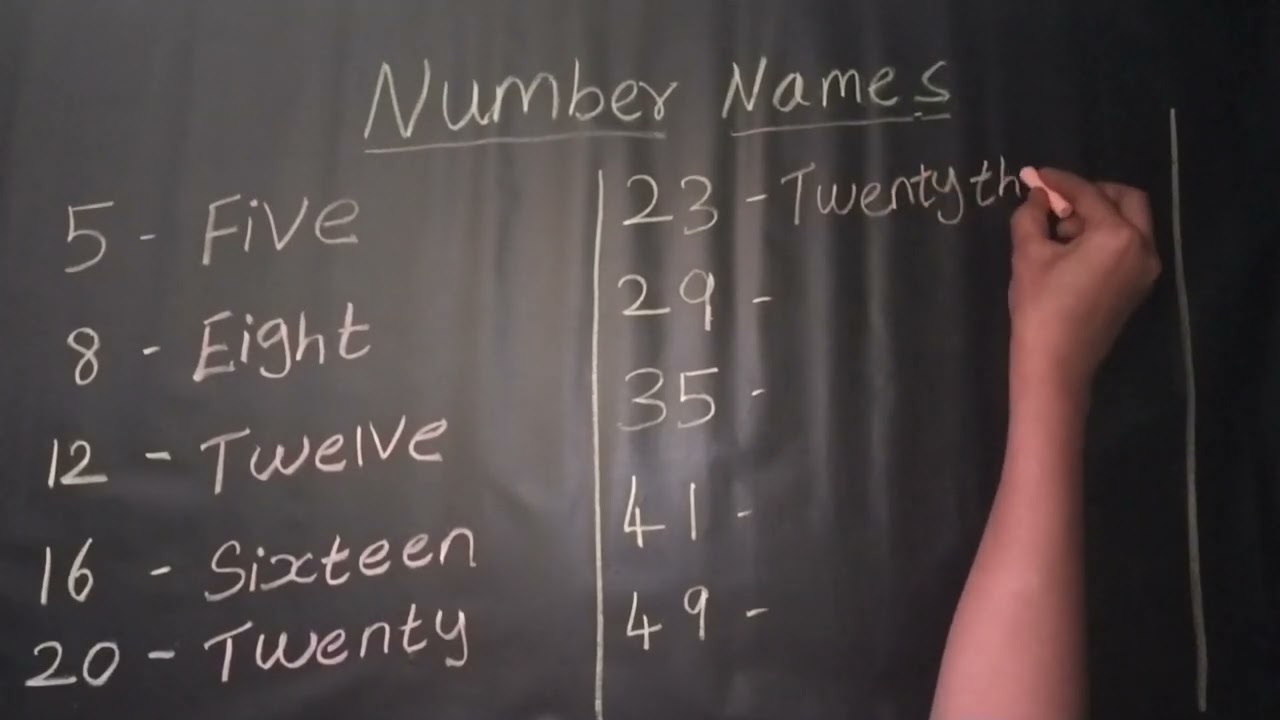 Number Names
5 - Five
8 - Eight
12 - Twelve
16 - Sixteen
20 - Twenty
23 - Twenty th
29 -
35 -
41 -
49 -